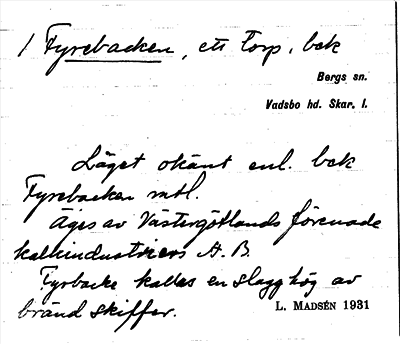 / Fyrebacken, ett torp, bek
Bergs sn.
Vadsbo hd. Skar. l.
Läget okänt enl. bek
Fyrebacken mtl.
Äges av Västergötlands förenade
kalkindustriers A.B.
Fyrbacke kallas en slagghög av
bränd skiffer.
L. MADSÉN 1931